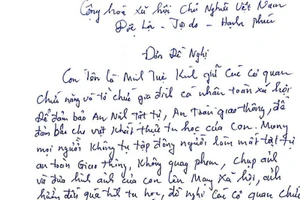 Cộng hoà xã hội Chủ Nghĩa Việt Nam
Độc Lập _ Tự do _ Hạnh phúc
Đơn Đề Nghị
Con Tên là Minh Tuệ Kính gửi Các cơ quan
chức năng và tổ chức gia đình cá nhân toàn xã hội
Để đảm bảo An Ninh Tật tự, An Toàn giao thông, để
đảm bảo cho việc Khất thực tu học của Con. Mong
mọi người Không tụ tập đông người làm mất trật tự
an toàn Giao thông, Không quay phim, chụp ảnh
và đưa hình ảnh của con lên Mạng Xã hội, ảnh
hưởng đến quá trình tu học, đề nghị Các cơ quan chức